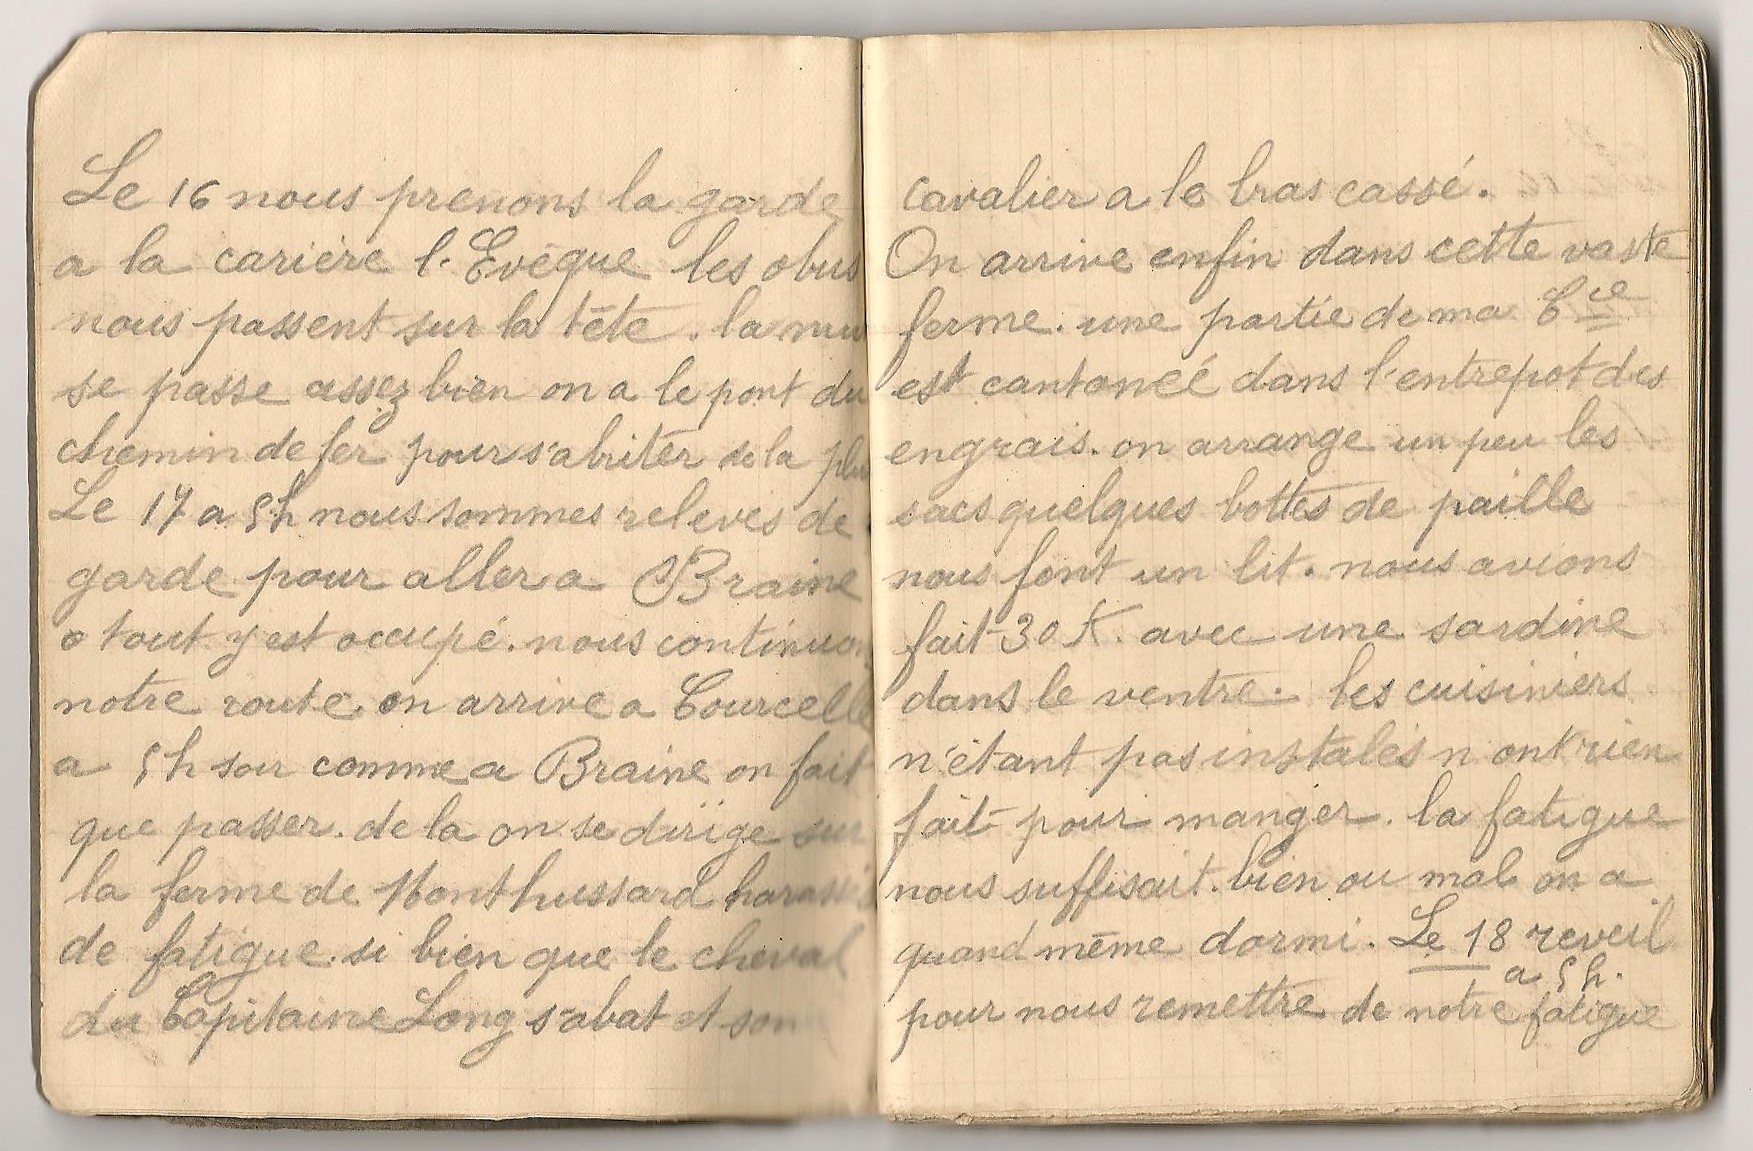 Le 16 nous prenons la garde
a la carière l'Evêque les obus
nous passent sur la tête. la
se passe assez bien on a le pont du
chemin de fer pour s'abriter de la
Le 17 a 5h nous sommes relevés de
garde pour aller a Braine
tout y est occupé. nous continuon
notre route. on arrive a Courcelle
a 5h soir comme a Braine on fait
que passer. de la on se dirige sur
la ferme de Monthussard harassés
de fatigue. si bien que le cheval
du Capitaine Long s'abat et son
cavalier a le bras cassé.
On arrive enfin dans cette vaste
ferme. une partie de ma Cie
est cantonéé dans l'entrepot des
engrais. on arrange un peu les
sacs quelques bottes de paille
nous font un lit. nous avions
fait 30 K. avec une sardine
dans le ventre. les cuisiniers
n'étant pas instalés n ont rien
fait pour manger. la fatigue
nous suffisait. bien ou mal on a
quand même dormi. Le 18 reveil
a 5h.
pour nous remettre de notre fatigue